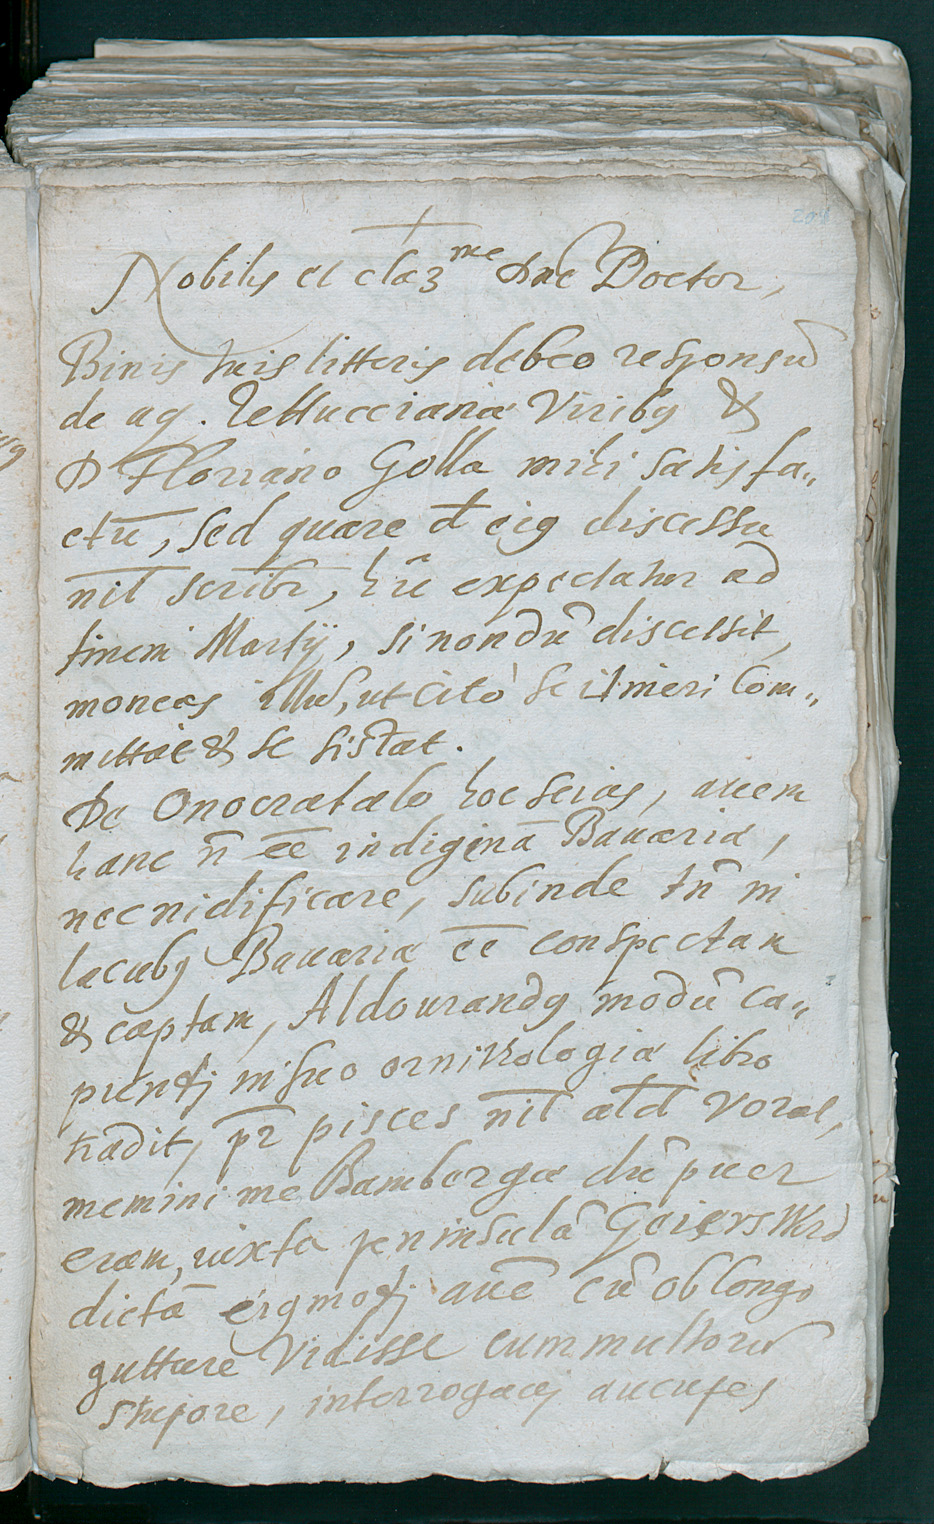 201
Nobilis et clariss^me Dne Doctor,
Binis tuis litteris debeo responsū
de aq. Tettucciana Viribꝯ &
D Florriano Golla mihi satisfa„
ctū, sed quare de eiꝯ discessu
nil scribi, hīc expectatur ad
finem Martij, si nondū discessit,
moneas illū, ut cito se itineri Com„
mittat & se sistat.
De Onocratalo hoc scias, auem
hanc n̄ eē indiginā Bauariæ,
nec nidificare, subinde tn̄ in
lacubꝯ Bauariæ eē conspectam
& captam, Aldourandꝯ modū ca„
piendj in suo ornithologiæ libro
tradit, pr̄ pisces nil aliđ vorat,
memini me Bambergæ dū puer
eram, iuxta peninsulā Geierswerd
dictā eiꝯmodj auē cū oblongo
gutture vidisse cum multorū
stupore, interrogatj aucupes